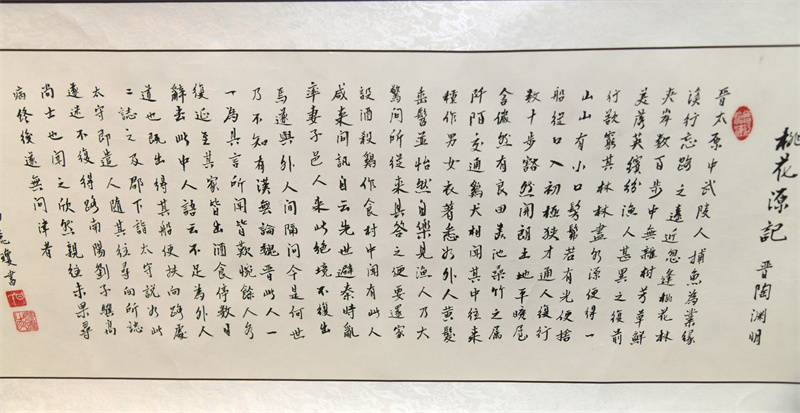 桃花源記 晉陶淵明
晉太原中武陵人捕魚為業緣
溪行忘路之遠近忽逢桃花林
夾岸數百步中無雜樹芳草鮮
美落英繽紛漁人甚異之復前
行欲窮其林林盡水源便得一
山山有小口髣髴若有光便捨
船從口入初極狹才通人復行
數十步豁然開朗土地平曠屋
舍儼然有良田美池桑竹之屬
阡陌交通鷄犬相聞其中往來
種作男女衣著悉如外人黃髮
垂髫並怡然自樂見漁人乃大
驚問所從來具答之便要還家
設酒殺鷄作食村中聞有此人
咸來問訊自云先世避秦時亂
率妻子邑人來此絕境不復出
焉遂與外人間隔問今是何世
乃不知有漢無論魏晉此人一
一為具言所聞皆歎惋餘人各
復延至其家皆出酒食停數日
辭去此中人語云不足為外人
道也既出得其船便扶向路處
々誌之及郡下詣太守說如此
太守即遣人隨其往尋向所誌
遂迷不復得路南陽劉子驥高
尚士也聞之欣然親往未果尋
病終後遂無問津者
瓊書